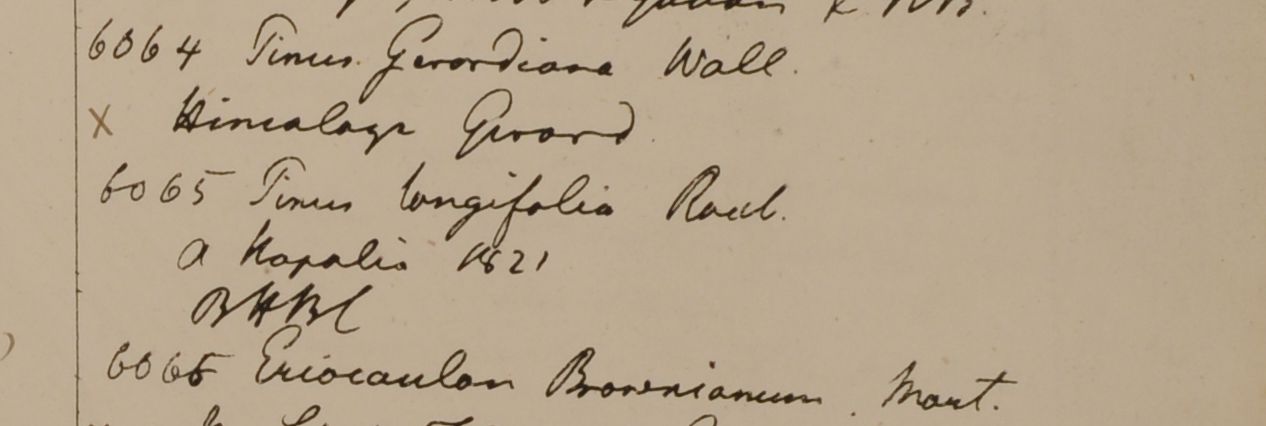 6064 Pinus Gerardiana Wall.
X Himalaya Gerard
6065 Pinus longifolia Roxb.
a Napalia 1821
B H B C
6066 Eriocaulon Brownianum. Mart.